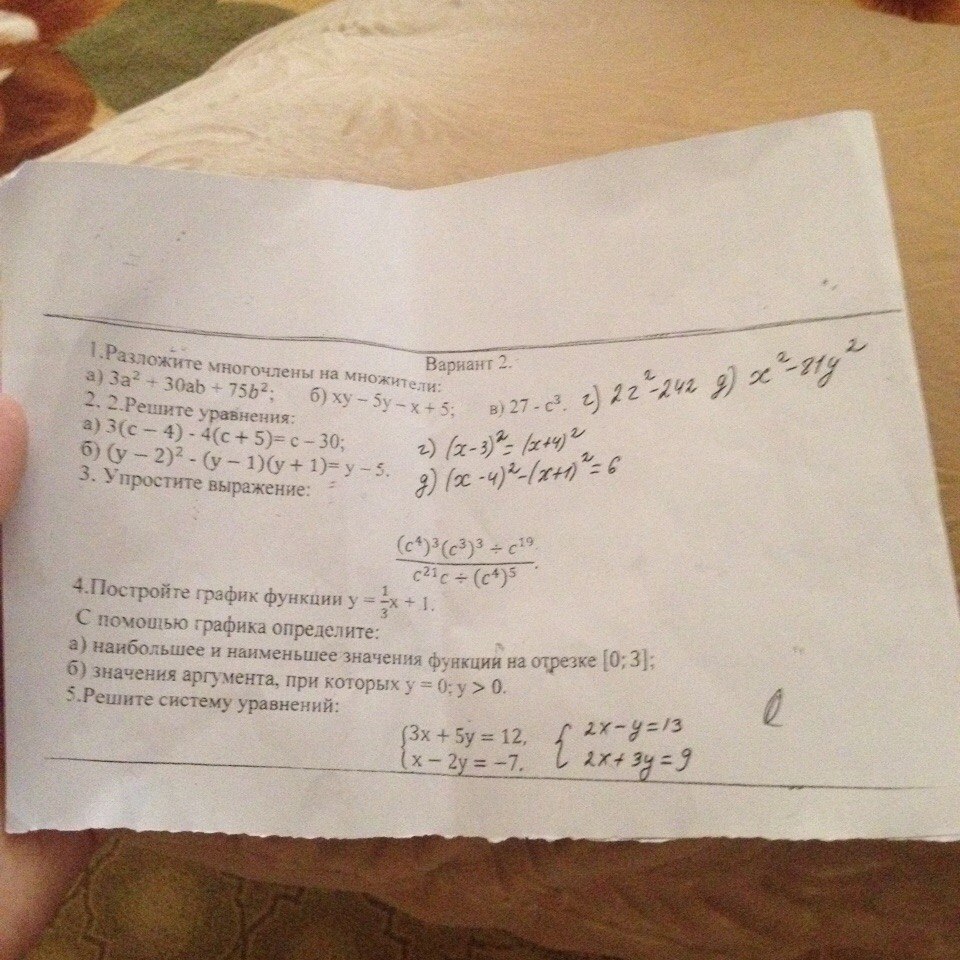 Вариант 2.
1.Разложите многочлены на множители:
а) 3a² + 30ab + 75b²; б) xy – 5y – x + 5; в) 27 - c³. г) 2z²-242 д) x²-81y²
2. 2.Решите уравнения:
а) 3(c – 4) - 4(c + 5)= c – 30; г) (x-3)²=(x+4)²
б) (y – 2)² - (y – 1)(y + 1)= y – 5. д) (x-4)²-(x+1)²=6
3. Упростите выражение:
(c⁴)³(c³)³ ÷ c¹⁹
c²¹c ÷ (c⁴)⁵.
4.Постройте график функции y = 1/3x + 1.
С помощью графика определите:
а) наибольшее и наименьшее значения функции на отрезке [0; 3];
б) значения аргумента, при которых y = 0; y > 0.
5.Решите систему уравнений:
{3x + 5y = 12, { 2x-y=13
{x – 2y = –7. 2x+3y=9